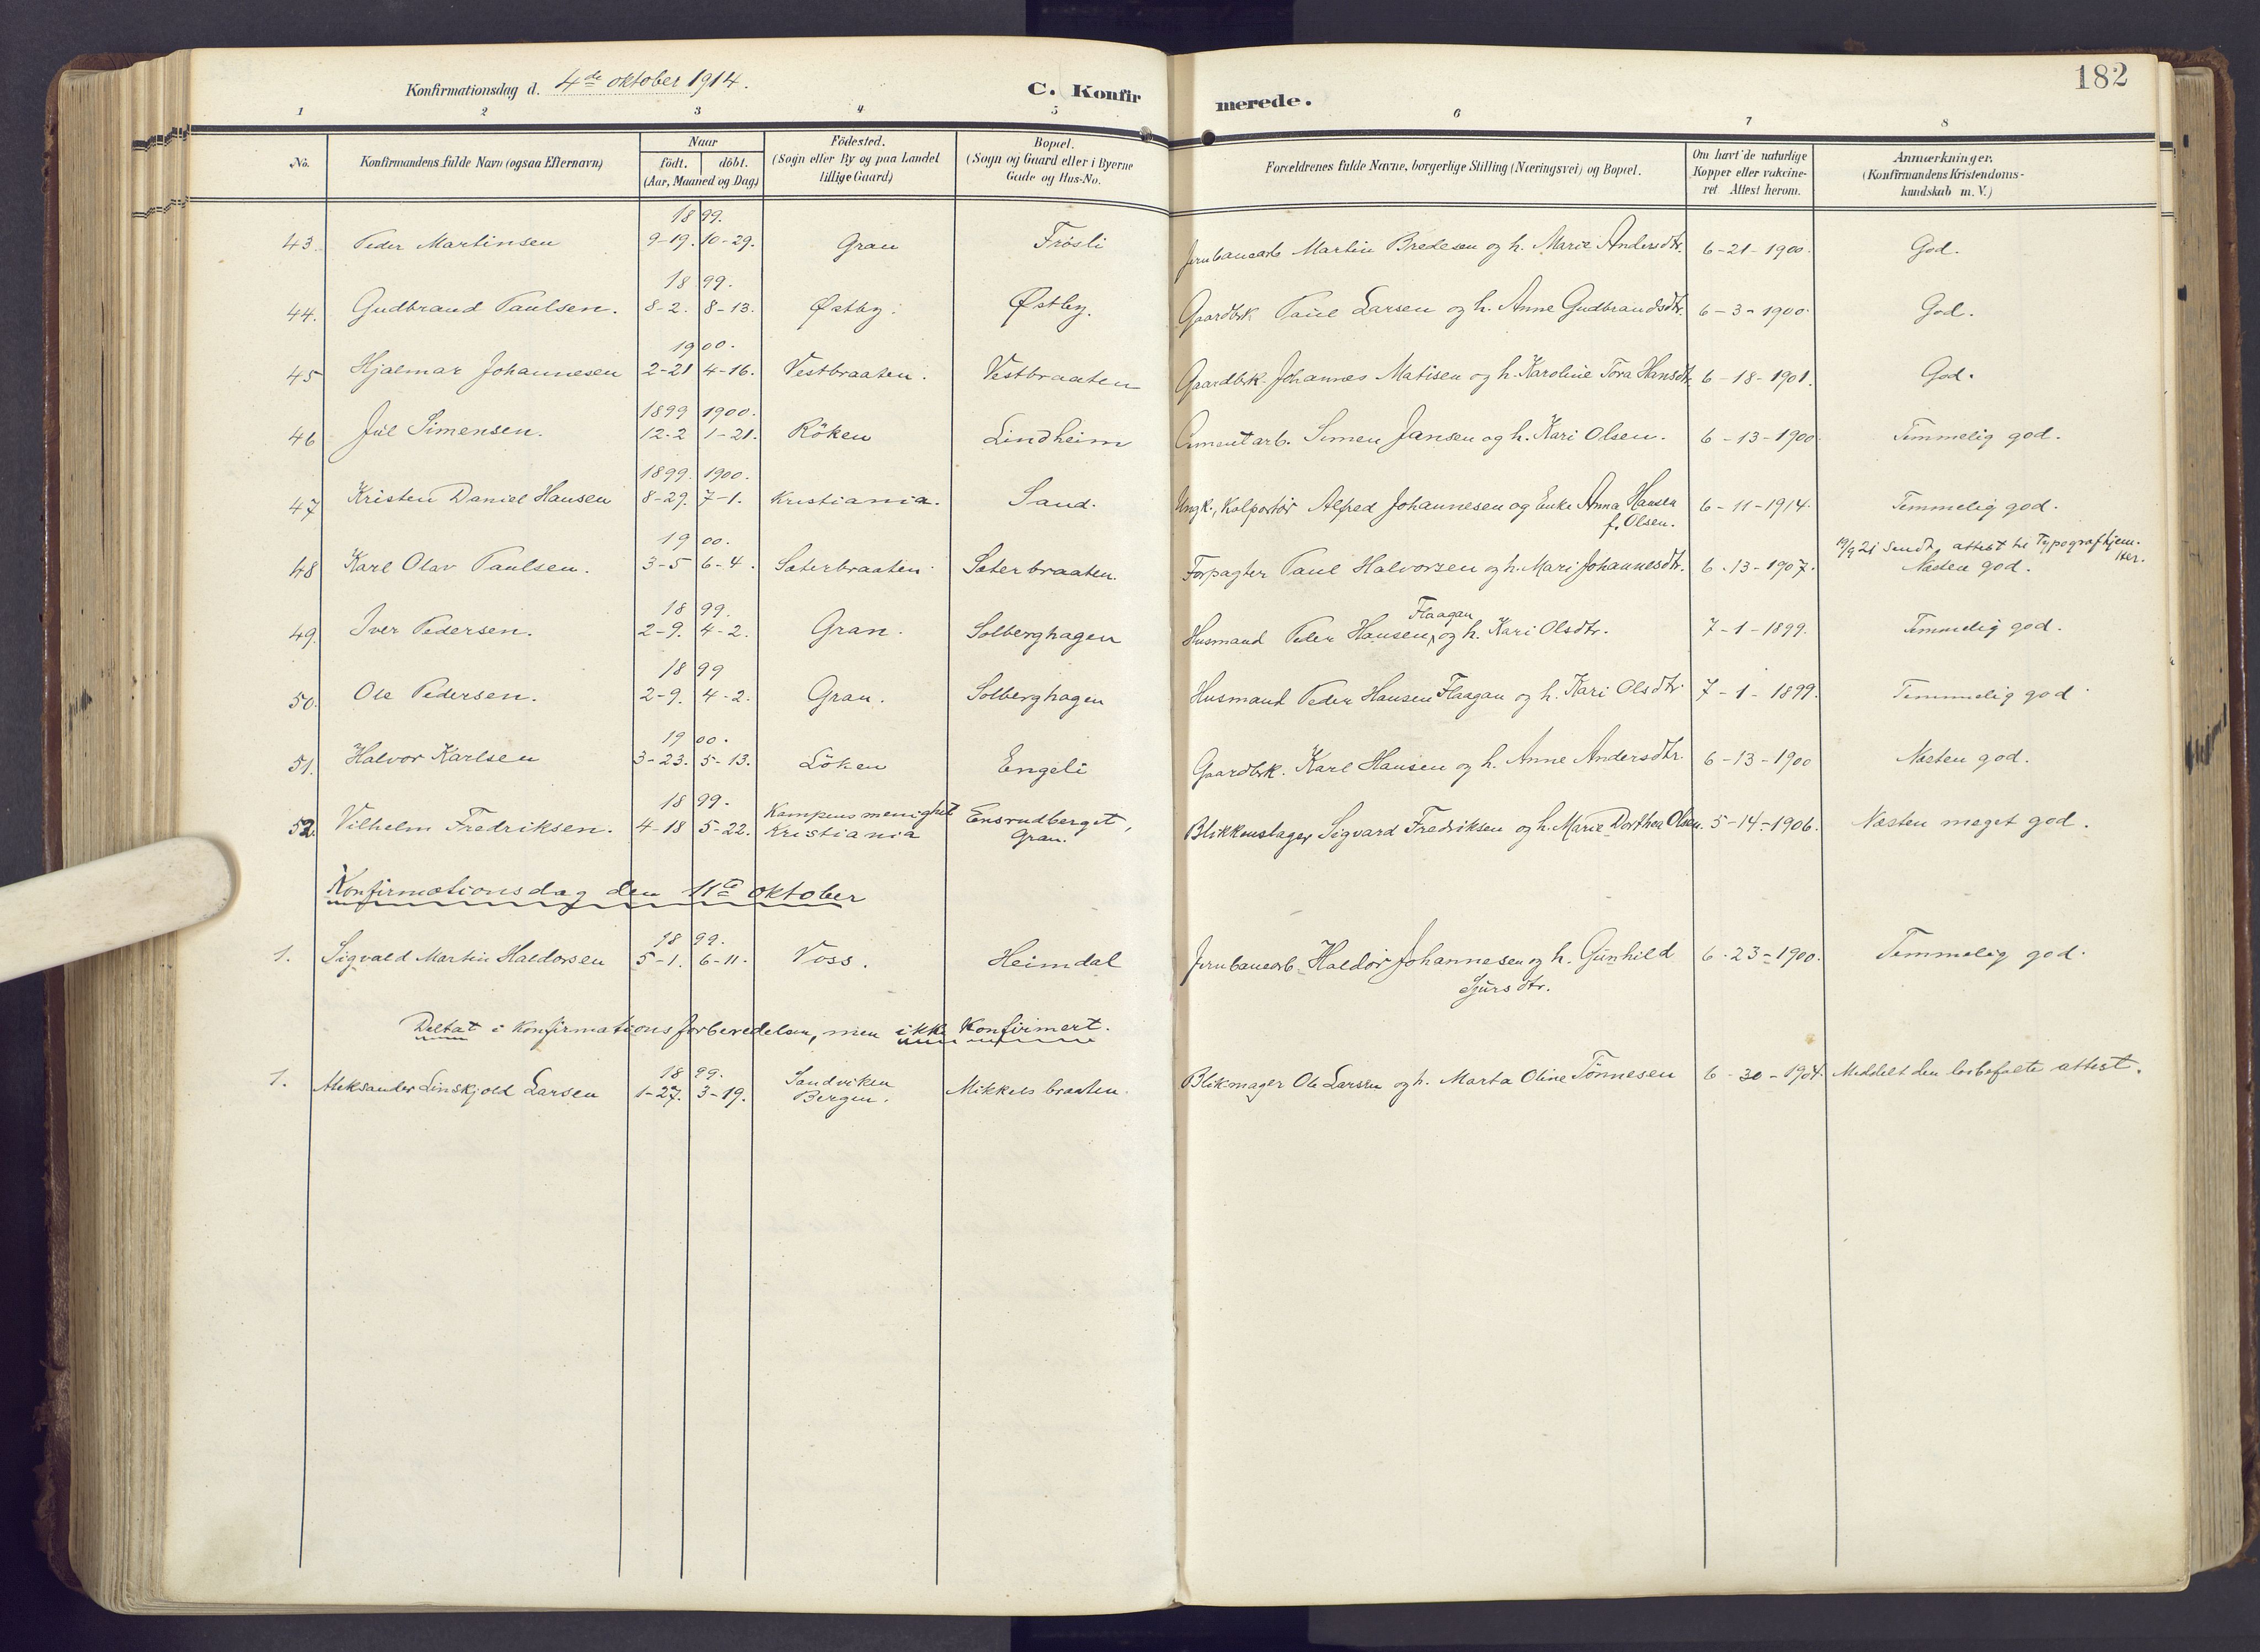 182
Konfirmationsdag d. 4de oktober 1914.
C. Konfirmerede.
1 2 3 4 5 6 7 8
No. | Konfirmandens fulde Navn (ogsaa Efternavn) | Naar födt. | döbt. (Aar, Maaned og Dag) | Födested. (Sogn eller By og paa Landet tillige Gaard) | Bopæl. (Sogn og Gaard eller i Byerne Gade og Hus-No. | Forældrenes fulde Navne, borgerlige Stilling (Næringsvei) og Bopæl. | Om havt de naturlige Kopper eller vakcineret Attest herom. | Anmærkninger. (Konfirmandens Kristendomskundskab m. V.)
1899.
43. Peder Martinsen 9-19. 10-29. Gran Frösli Jernbanearb Martin Bredesen og h. Marie Andersdtr. 6-21-1900. God.
1899.
44. Gudbrand Paulsen. 8-2. 8-13. Østby. Østby. Gaardbrk Paul Larsen og h. Anne Gudbrandsdtr. 6-3-1900. God.
1900.
45 Hjalmar Johannesen 2-21 4-16. Vestbraaten. Vestbraaten Gaardbrk. Johannes Matisen og h. Karoline Tora Hansdtr. 6-18-1901. God.
1899 1900.
46 Jul Simensen. 12-2 1-21. Röken Lindheim Cementarb. Simen Jansen og h. Kari Olsen. 6-13-1900. Temmelig god.
1899. 1900.
47 Kristen Daniel Hansen 8-29. 7-1. Kristiania. Sand. Ungk., Kolportör Alfred Johannesen og Enke Anna Hansen 6-11-1914. Temmelig god.
f. Olsen.
1900. 19/9 21 Sendt attest til Typografhjem.
48 Karl Olav Paulsen. 3-5 6-4. Sæterbraaten. Sæterbraaten. Forpagter Paul Halvorsen og h. Mari Johannesdtr. 6-13-1907. Næsten god.
1899. Flaagan
49. Iver Pedersen. 2-9. 4-2. Gran. Solberghagen Husmand Peder Hansen, og h. Kari Olsdtr. 7-1-1899. Temmelig god.
1899
50. Ole Pedersen. 2-9. 4-2. Gran. Solberghagen Husmand Peder Hansen Flaagan og h. Kari Olsdtr 7-1-1899. Temmelig god.
1900.
51. Halvor Karlsen 3-23. 5-13. Löken Engeli Gaardbrk. Karl Hansen og h. Anne Andersdtr. 6-13-1900 Næsten god.
1899.
52. Vilhelm Fredriksen. 4-18 5-22. Kampens menighet Kristiania Ensrudberget, Gran. Blikkenslager Sigvard Fredriksen og h. Marie Dorthea Olsen. 5-14-1906. Næsten meget god.
Konfirmationsdag den 11te oktober
1899.
1. Sigvald Martin Haldorsen 5-1. 6-11. Voss. Heimdal Jernbanearb. Haldor Johannesen og h. Gunhild 6-23-1900. Temmelig god.
Sjursdtr.
Deltat i konfirmationsforberedelsen, men ikke konfirmert.
1899.
1. Aleksander Linskjold Larsen 1-27. 3-19. Sandviken Bergen. Mikkelsbraaten. Ole Larsen og h. Marta Oline Tönnesen 6-30-1904. Meddelt den lovbefalte attest.